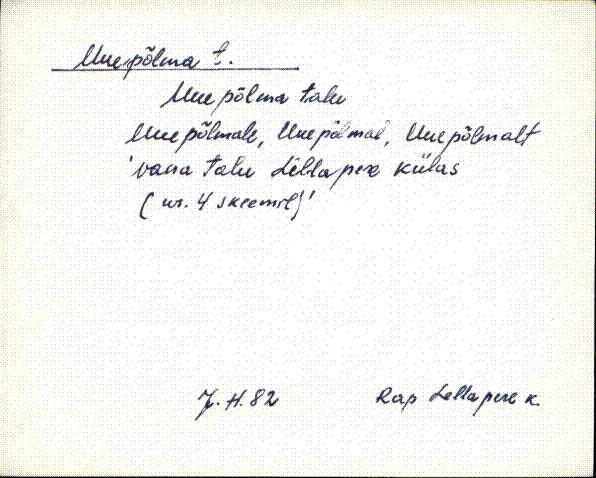 Uuepõlma t.
Uuepõlma talu
Uuepõlmale, Uuepõlmal, Uuepõlmalt
'vana talu Lellapere külas
(nr. 4 skeemil)'
J. H. 82 Rap Lellapere k.